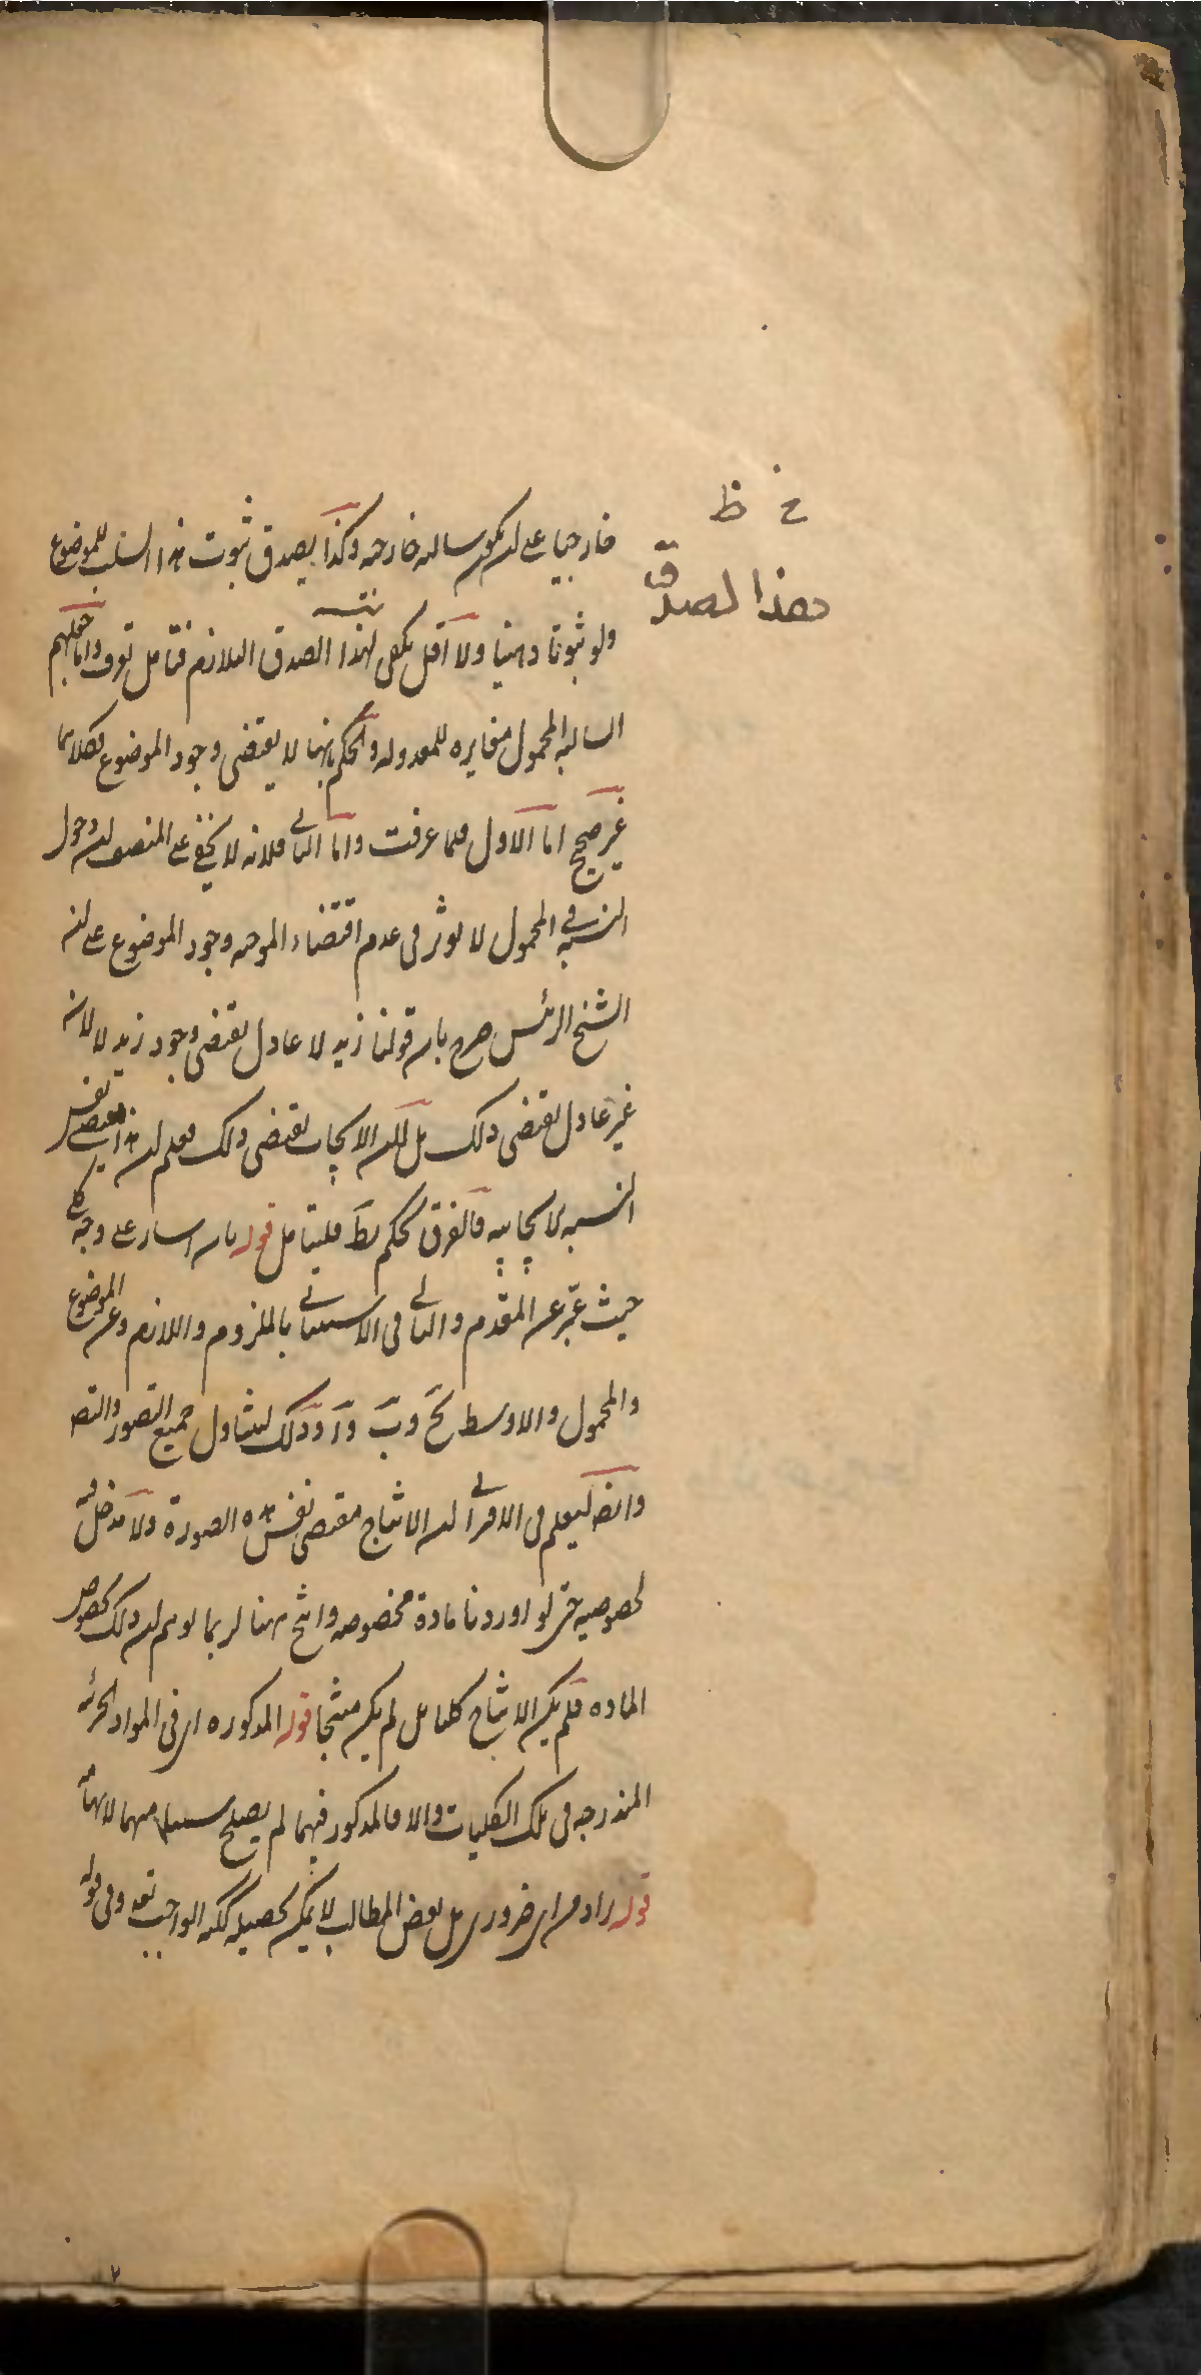 خ ظ
هذا لصدق
خارجيا على ان يكون سالبه خارجيه وكذا يصدق ثبوت هذا السلب للموضوع
ولو ثبوتا ذهنيا ولا اقل يكفى لهذا الصدق التلازم فتامل تعرف واما جعلهم
السالبه المحمول مغايره للمعدوله والحكم بانها لا يقتضى وجود الموضوع فكلاهما
غير صحيح اما الاول فلما عرفت واما الثانى فلانه لا يخفى على المنصف ان دخول
النسبه فى المحمول لا يوثر فى عدم اقتضاء الموجبه وجود الموضوع على انه
الشيخ الرئيس صرح بان قولنا زيد لا عادل يقتضى وجود زيد لا لانه
غير عادل يقتضى ذلك بل لان الايجاب يقتضى ذلك فعلم ان هذا مقتضى نفس
النسبه الايجابيه فالفرق تحكم بط فليتامل قوله بان اشار على وجه كلى
حيث عبر عن المقدم والتالى فى الاستثنائى بالملزوم واللازم وعن الموضوع
والمحمول والاوسط بج وب وآ وذلك ليتناول جميع التصور والتصد
وايضا ليعلم فى الاقترانى ان الانتاج مقتضى نفس هذه الصورة ولا مدخل فيه
لخصوصيه حتى لو اوردنا مادة مخصوصه وانتج هنا لربما توهم ان ذلك لخصوص
الماده فلم يكن الانتاج كليا بل لم يكن منتجا قوله المذكوره اى فى المواد الجزئيه
المندرجه فى تلك الكليات والا فالمذكور فيهما لم يصلح منهما لانها
قوله زاد من اى ضرورى بل بعض المطالب لا يمكن تحصيله ككنه الواجب تعه وفى قوله